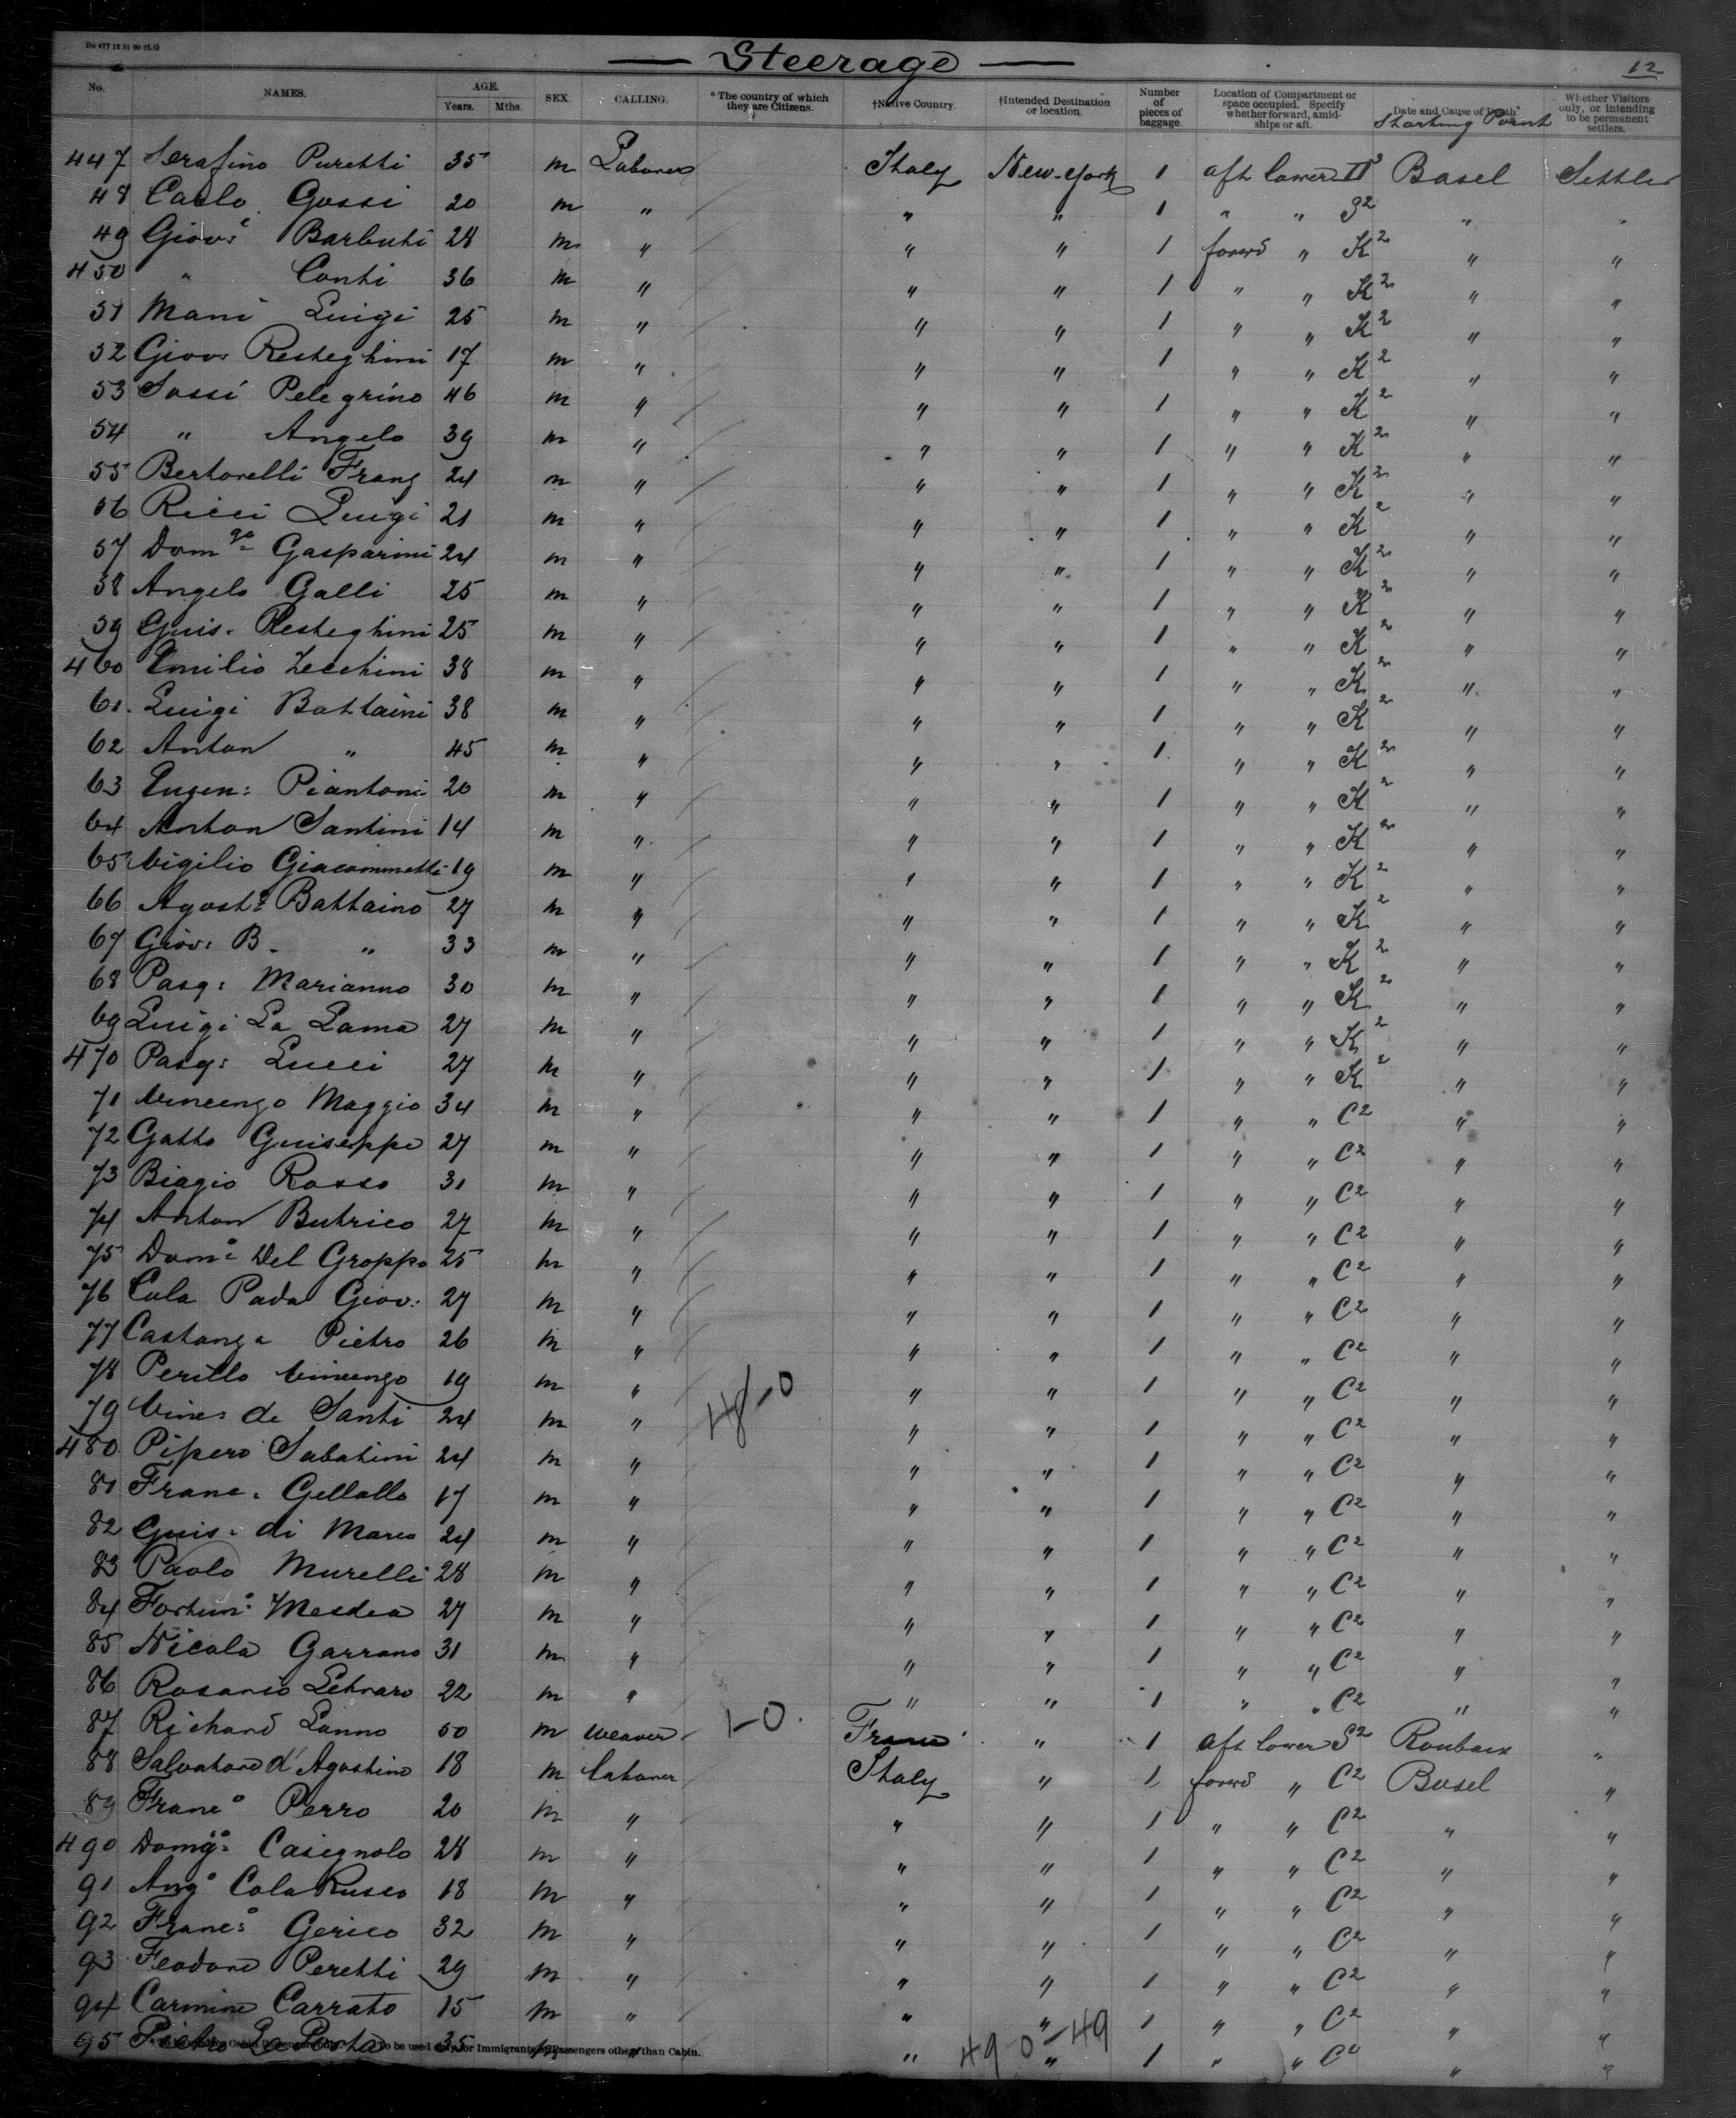 Do 477 12 31 90 2L.G
— Steerage —
12
No. NAMES. AGE. Years. Mths. SEX. CALLING. * The country of which they are Citizens. †Native Country. †Intended Destination or location. Number of pieces of baggage. Location of Compartment or space occupied. Specify whether forward, amidships or aft. Date and Cause of Death. Starting Point Whether Visitors only, or intending to be permanent settlers.
447 Serafino Puretti 35 m Laborer Italy New-York 1 aft lower Basel Settler
48 Carlo Gossi 20 m " " " 1 " " S2 " "
49 Giov: Barbuti 28 m " " " 1 forwd " K2 " "
450 " Conti 36 m " " " 1 " " K2 " "
51 Mani Luigi 25 m " " " 1 " " K2 " "
52 Giov: Resteghini 17 m " " " 1 " " K2 " "
53 Sassi Pelegrino 46 m " " " 1 " " K2 " "
54 " Angelo 39 m " " " 1 " " K2 " "
55 Bertorelli Franz 24 m " " " 1 " " K2 " "
56 Ricci Luigi 21 m " " " 1 " " K2 " "
57 Domgo Gasparini 24 m " " " 1 " " K2 " "
58 Angelo Galli 25 m " " " 1 " " K2 " "
59 Guis. Resteghini 25 m " " " 1 " " K2 " "
460 Emilio Zecchini 38 m " " " 1 " " K2 " "
61. Luigi Battaini 38 m " " " 1 " " K2 " "
62 Anton " 45 m " " " 1 " " K2 " "
63 Eugen: Piantoni 20 m " " " 1 " " K2 " "
64 Anton Santini 14 m " " " 1 " " K2 " "
65 Virgilio Giacommetti 19 m " " " 1 " " K2 " "
66 Agosto Battaino 27 m " " " 1 " " K2 " "
67 Giov: B. " 33 m " " " 1 " " K2 " "
68 Pasq: Marianno 30 m " " " 1 " " K2 " "
69 Luigi La Lama 27 m " " " 1 " " K2 " "
470 Pasq: Lucci 27 m " " " 1 " " K2 " "
71 Vincenzo Maggio 34 m " " " 1 " " C2 " "
72 Gatto Guiseppe 27 m " " " 1 " " C2 " "
73 Biagio Rosso 31 m " " " 1 " " C2 " "
74 Anton Butrico 27 m " " " 1 " " C2 " "
75 Domo Del Groppo 25 m " " " 1 " " C2 " "
76 Cola Pada Giov: 27 m " " " 1 " " C2 " "
77 Castanga Pietro 26 m " " " 1 " " C2 " "
78 Perillo Vincenzo 19 m " 48-0 " " 1 " " C2 " "
79 Vinc: de Santi 24 m " " " 1 " " C2 " "
480 Pipero Sabatini 24 m " " " 1 " " C2 " "
81 Franc. Gellallo 17 m " " " 1 " " C2 " "
82 Guis: di Marco 24 m " " " 1 " " C2 " "
83 Paolo Murelli 28 m " " " 1 " " C2 " "
84 Fortuno Mesdea 27 m " " " 1 " " C2 " "
85 Nicola Garrano 31 m " " " 1 " " C2 " "
86 Rosario 22 m " " " 1 " " C2 " "
87 Richard Lanno 50 m weaver 1-0. France " 1 aft lower S2 Roubaix "
88 Salvatore d'Agostino 18 m laborer Italy " 1 forwd " C2 Basel "
89 Franco Perro 20 m " " " 1 " " C2 " "
490 Domgo Casignolo 28 m " " " 1 " " C2 " "
91 Ango Cola Russo 18 m " " " 1 " " C2 " "
92 Franco Gerico 32 m " " " 1 " " C2 " "
93 Feodore Peretti 29 m " " " 1 " " C2 " "
94 Carmine Carrato 15 m " " " 1 " " C2 " "
95 Pietro La Porta 35 m " " " 1 " " " "
49 0-49
To be used only for Immigrants or Passengers other than Cabin.